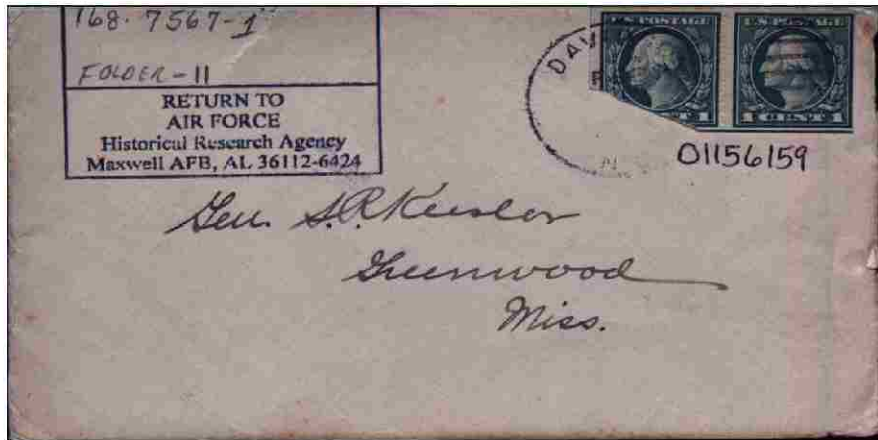 168.7567-1
FOLDER-11
RETURN TO
AIR FORCE
Historical Research Agency
Maxwell AFB, AL 36112-6424
U.S. POSTAGE
U.S. POSTAGE
1 CENT 1
DAV
01156159
Gen. S.R. Keesler
Greenwood
Miss.